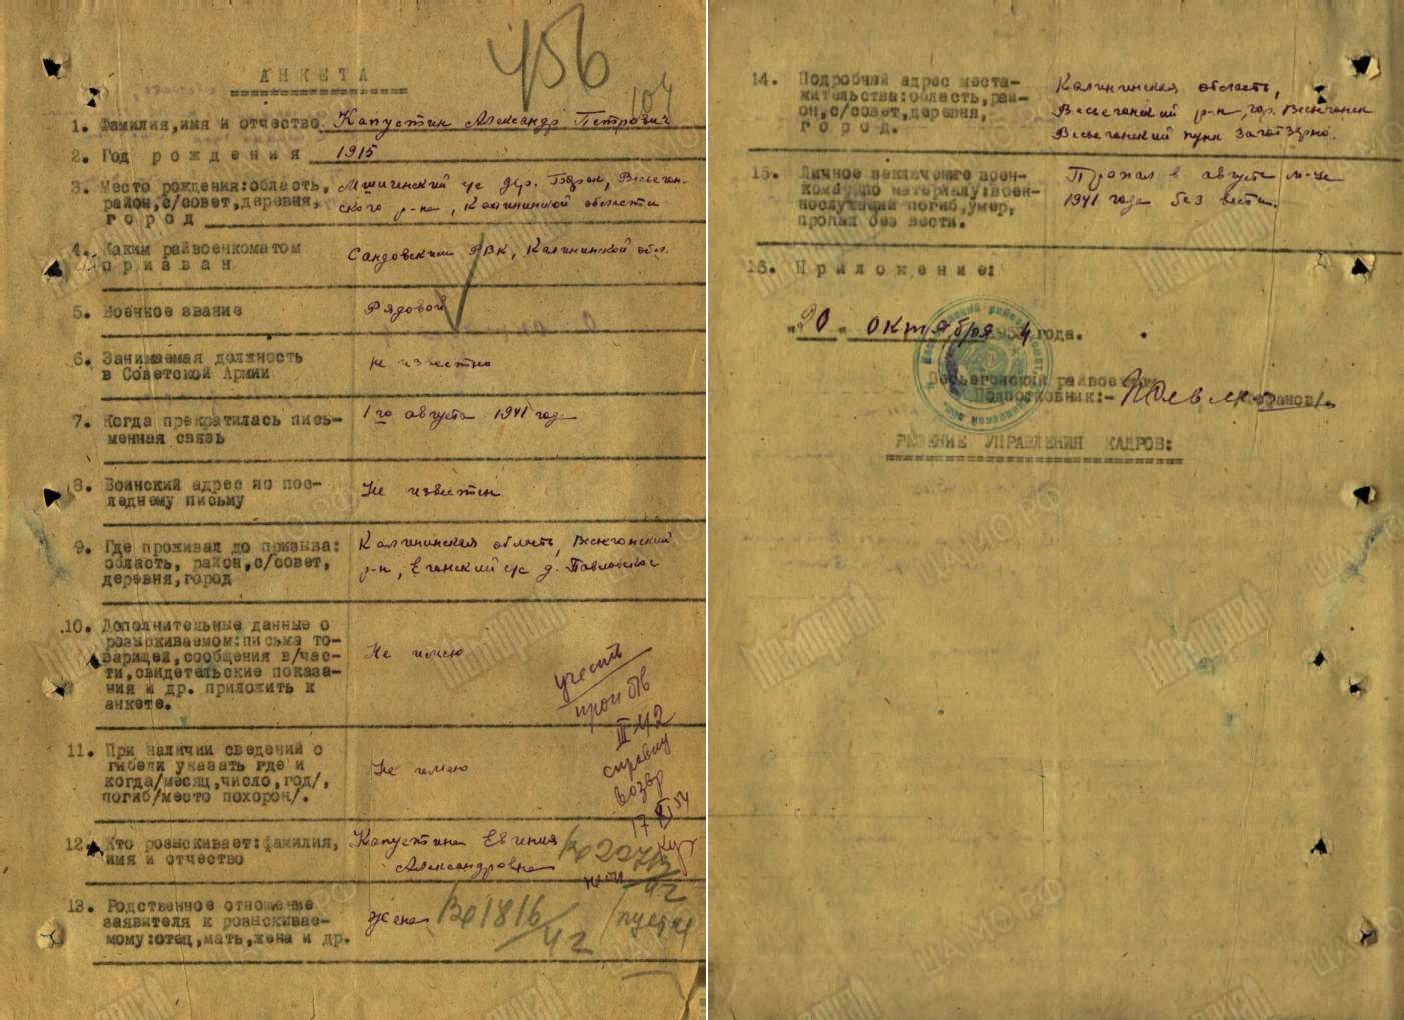 456
104
АНКЕТА
1. Фамилия,имя и отчество Капустин Александр Петрович
2. Год рождения 1915
3. Место рождения:область, район,с/совет,деревня, город
с/с дер. Весьегон-
ского р-на, Калининской области
4. Каким райвоенкоматом призван
Сандовским РВК, Калининской обл.
5. Военное звание Рядовой
6. Занимаемая должность
в Советской Армии
не известно
7. Когда прекратилась пись-
менная связь
1го августа 1941 года
8. Воинский адрес по пос-
леднему письму
Не известен
9. Где проживал до призыва:
область, район,с/совет,
деревня,город
Калининская область, Весьегонский
р-н, Егонский с/с д.
10. Дополнительные данные о
розыскиваемом:письма то-
варищей,сообщения в/час-
ти,свидетельские показа-
ния и др. приложить к
анкете.
Не имею
учесть
проп б/в
III 42
справку
возвр
17 XI 54
11. При наличии сведений о
гибели указать где и
когда/месяц,число,год/,
погиб/место похорон/.
Не имею
12. Кто розыскивает:фамилия,
имя и отчество
Капустина Евгения
Александровна
13. Родственное отношение
заявителя к розыскивае-
мому:отец,мать,жена и др.
Жена
14. Подробный адрес места-
жительства:область,рай-
он,с/совет,деревня,
город.
Калининская область,
Весьегонский р-н, гор. Весьегонск
Весьегонский пункт Заготзерно.
15. Личное заключение воен-
кома по материалу:воен-
нослужащий погиб,умер,
пропал без вести.
Пропал в августе м-це
1941 года без вести.
16. Приложение:
"20" октября 1954 года.
Весьегонский райвоенком
Подполковник:-
РЕШЕНИЕ УПРАВЛЕНИЯ КАДРОВ: